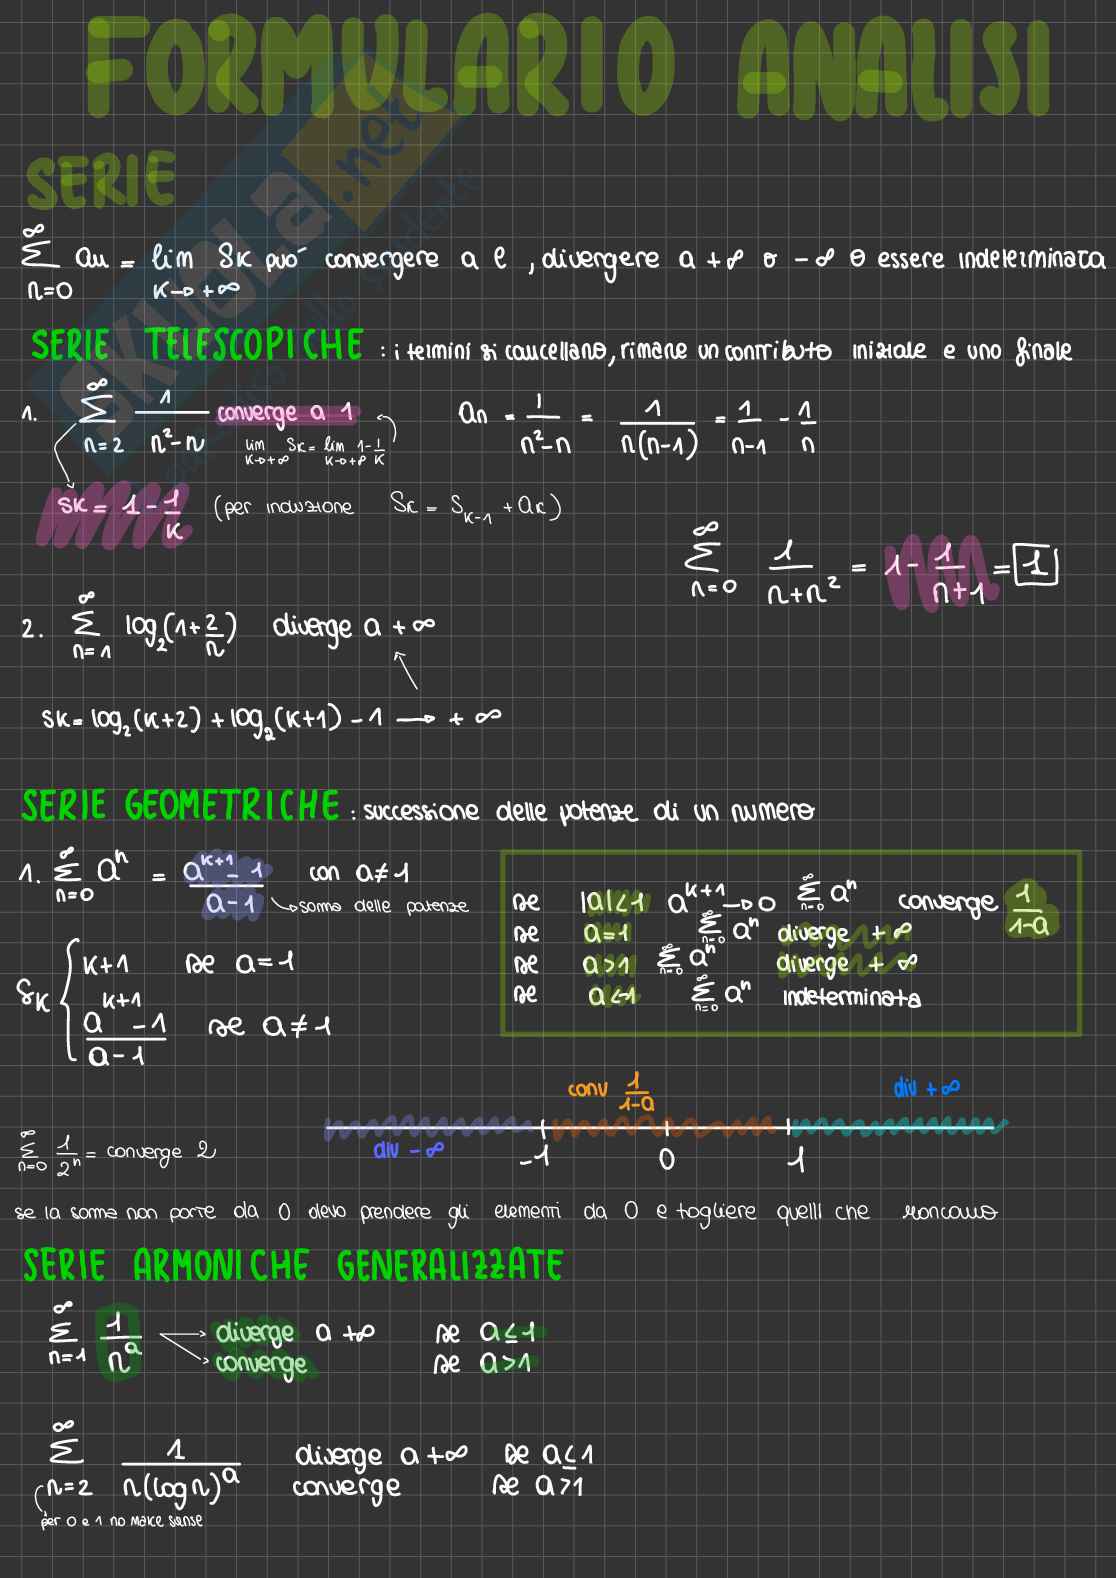 FORMULARIO ANALISI
SERIE
∞
∑ an = lim Sk può convergere a ℓ, divergere a +∞ o -∞ o essere indeterminata
n=0 k→+∞
SERIE TELESCOPICHE : i termini si cancellano, rimane un contributo iniziale e uno finale
1. ∑_{n=2}^{∞} 1/(n²-n) converge a 1 an = 1/(n²-n) = 1/(n(n-1)) = 1/(n-1) - 1/n
lim_{k→+∞} Sk = lim_{k→+∞} 1-1/k
Sk = 1 - 1/k (per induzione Sk = S_{k-1} + ak)
∑_{n=0}^{∞} 1/(n+n²) = 1 - 1/(n+1) = 1
2. ∑_{n=1}^{∞} log₂(1+2/n) diverge a +∞
Sk = log₂(k+2) + log₂(k+1) - 1 → +∞
SERIE GEOMETRICHE : successione delle potenze di un numero
1. ∑_{n=0}^{∞} aⁿ = (a^{k+1} - 1)/(a-1) con a≠1
→ somma delle potenze
Sk { k+1 se a=1
(a^{k+1} - 1)/(a-1) se a≠1
se |a|<1 a^{k+1} → 0 ∑_{n=0}^{∞} aⁿ converge 1/(1-a)
se a=1 ∑_{n=0}^{∞} aⁿ diverge +∞
se a>1 ∑_{n=0}^{∞} aⁿ diverge +∞
se a<-1 ∑_{n=0}^{∞} aⁿ indeterminata
conv 1/(1-a) div +∞
div -∞ -1 0 1
∑_{n=0}^{∞} 1/2ⁿ = converge 2
se la somma non parte da 0 devo prendere gli elementi da 0 e togliere quelli che mancano
SERIE ARMONICHE GENERALIZZATE
∑_{n=1}^{∞} 1/n^a → diverge a +∞ se a≤1
→ converge se a>1
∑_{n=2}^{∞} 1/(n(log n)^a) diverge a +∞ se a≤1
converge se a>1
per 0 e 1 no make sense
SKUOLA.net